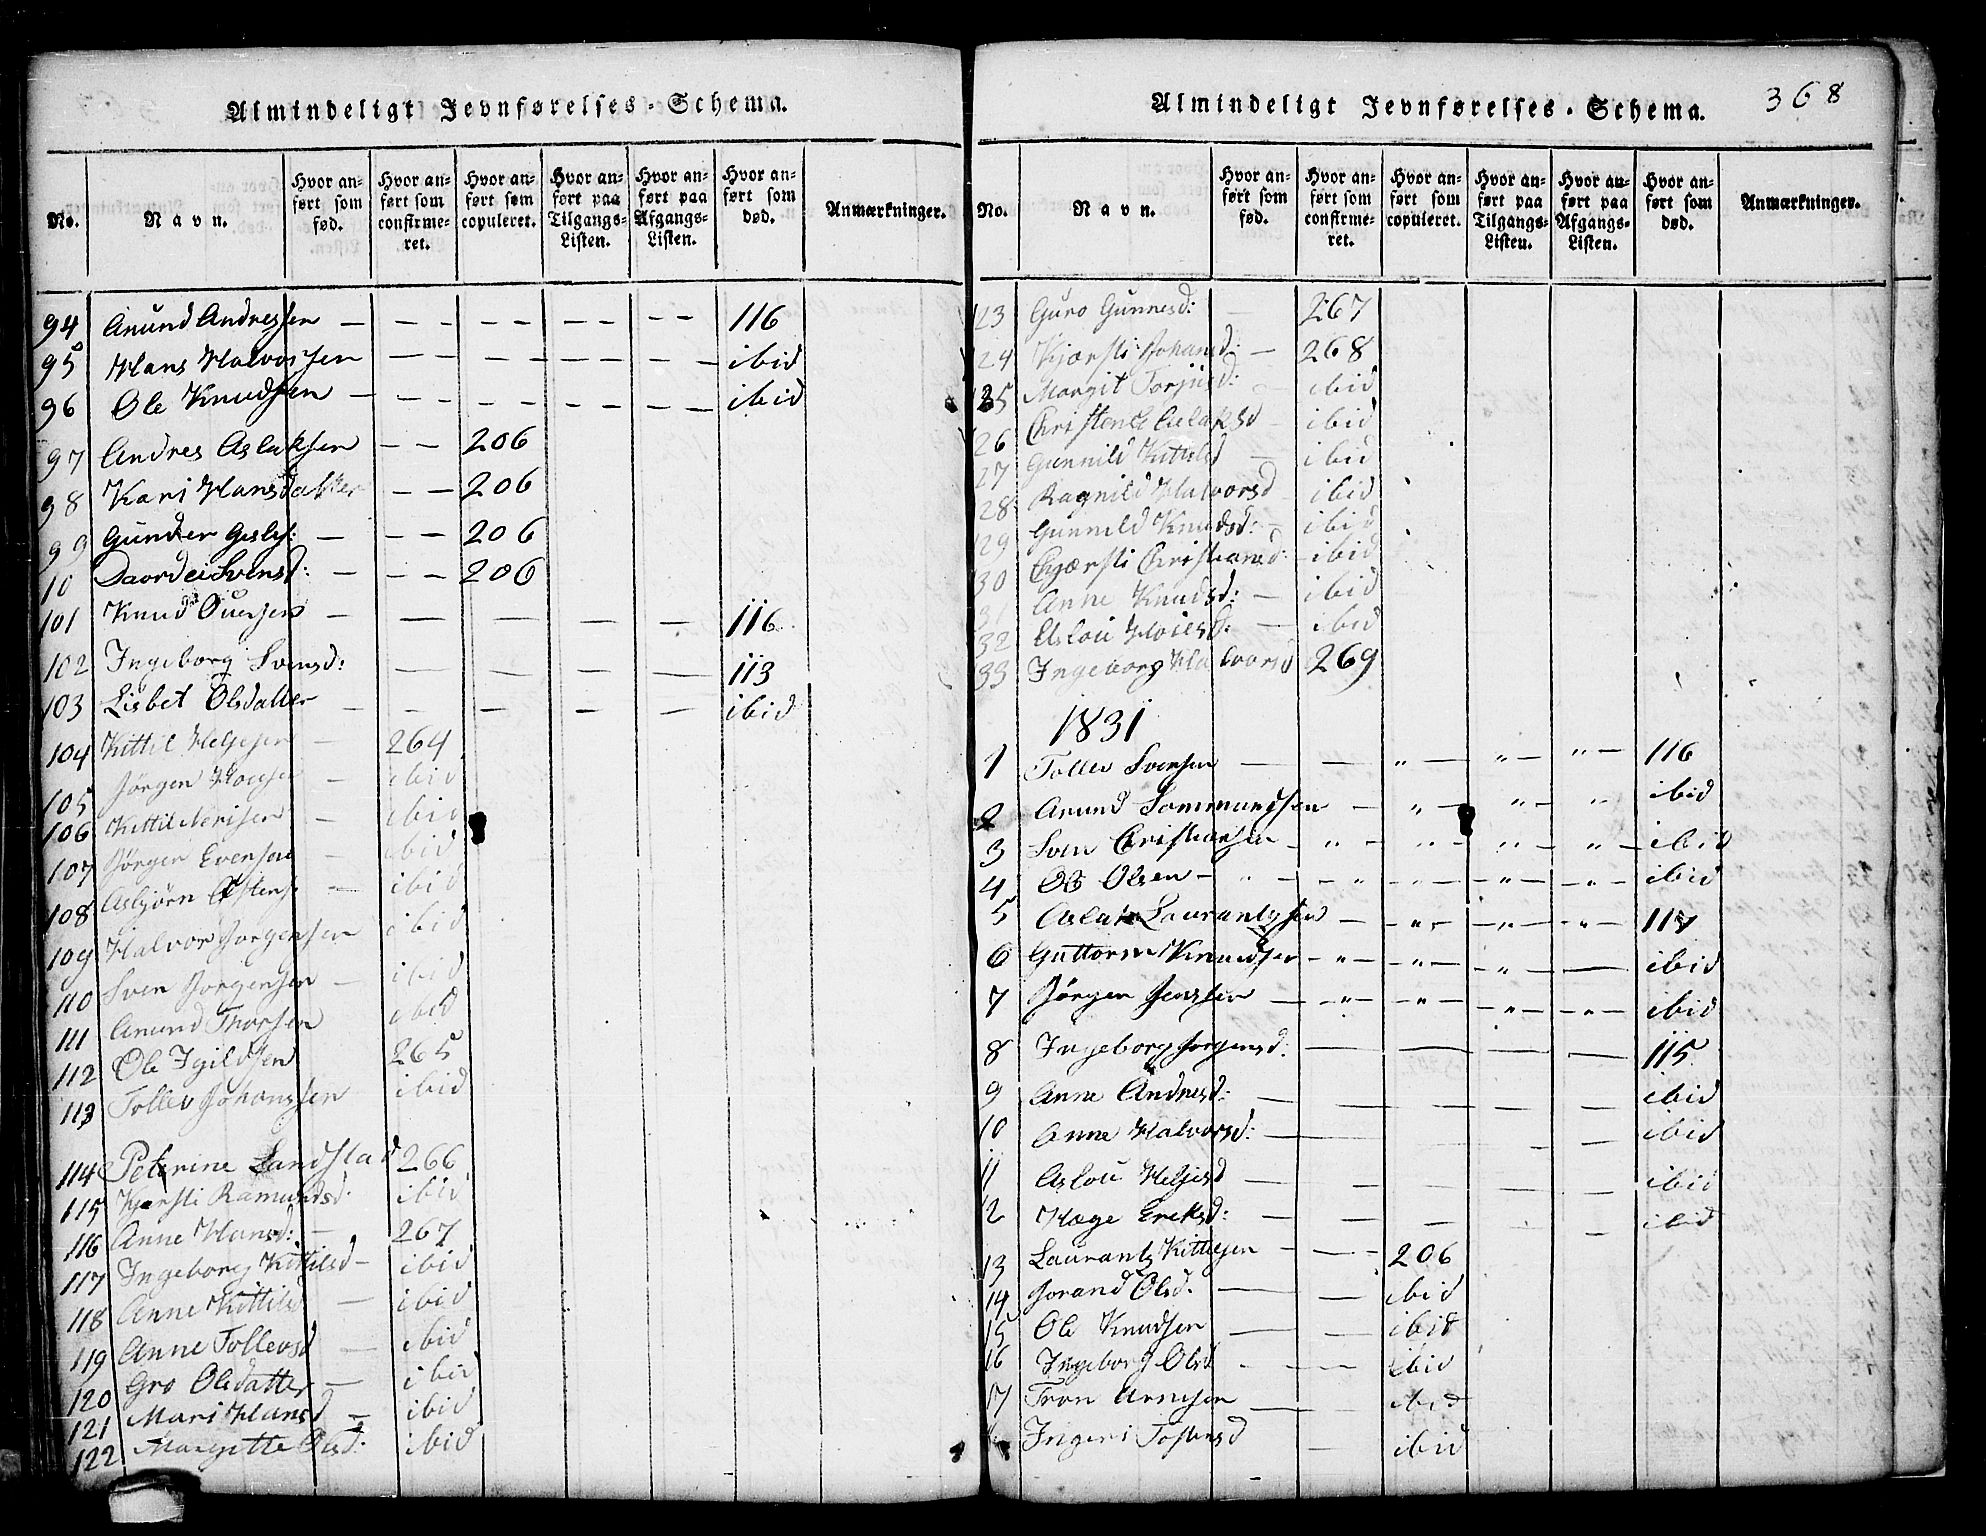 Almindeligt Jevnførelses-Schema.
No. Navn. Hvor anført som fød. Hvor anført som confirmeret. Hvor anført som copuleret. Hvor anført paa Tilgangs-Listen. Hvor anført paa Afgangs-Listen. Hvor anført som død. Anmærkninger.
94 Anund Andressen — — — — — — — 116
95 Hans Halvorsen — — — — — — — ibid
96 Ole Knudsen — — — — — — — — ibid
97 Andres Aslaksen — — 206
98 Kari Hansdatter — — 206
99 Gunder Gisles: — — — 206
10 Svensd: — — — 206
101 Knud — — — — — 116
102 Ingeborg Svensd: — — — — 113
103 Lisbet Olsdatter — — — — — ibid
104 Kittil Helgesen — 264
105 Jørgen — ibid
106 Kittil — ibid
107 Jørgen Evensen — ibid
108 Asbjørn — ibid
109 Halvor Jørgensen ibid
110 Sven Jørgensen — ibid
111 Anund Thorsen ibid
112 Ole Igildsen 265
113 Tollev Johanssen ibid
114 Petrine Landstad 266
115 Kjersti Ramundsd: ibid
116 Anne Hansd: — 267
117 Ingeborg Kittilsd — ibid
118 Anne Kittilsd — ibid
119 Anne Tollevsd — ibid
120 Gro Olsdatter — ibid
121 Mari Hansd — ibid
122 Margitte Olsd: ibid
Almindeligt Jevnførelses-Schema. 368
No. Navn. Hvor anført som fød. Hvor anført som confirmeret. Hvor anført som copuleret. Hvor anført paa Tilgangs-Listen. Hvor anført paa Afgangs-Listen. Hvor anført som død. Anmærkninger.
123 Guro Gunnesd: — 267
124 Kjærsti Johansd: — 268
125 Margit Torjusd: — ibid
26 Aslaksd — ibid
27 Gunnild Kittilsd — ibid
28 Ragnild Halvorsd ibid
29 Gunnild Knudsd: — ibid
30 Kjærsti Christiansd: — ibid
31 Anne Knudsd: — ibid
32 Aslou — ibid
33 Ingeborg Halvorsd 269
1831
1 Tollev Svensen — — „ — „ — „ — 116
2 Anund Sommundsen — „ — „ — „ ibid
3 Sven Christiansen — „ — „ — „ — „ — ibid
4 Ole Olsen — „ — — „ — „ — „ — ibid
5 Aslak Laurantzsen — — „ — „ — „ — 117
6 Guttorm Knudsen — „ — — „ — — „ — — ibid
7 Jørgen Jenssen — — „ — — „ — — „ — — „ — ibid
8 Ingeborg Jørgensd: — — — — 115
9 Anne Andresd: — — — — — ibid
10 Anne Halvorsd: — — — — — ibid
11 Aslou Helgesd — — — — — ibid
12 Hæge Ereksd: — — — — — ibid
13 Laurantz Kittilsen — — — — 206
14 Jorand Olsd. — — ibid
15 Ole Knudsen — — ibid
16 Ingeborg Olsd — — — ibid
17 Tron Arnesen — — ibid
Ingeri Tostensd — ibid